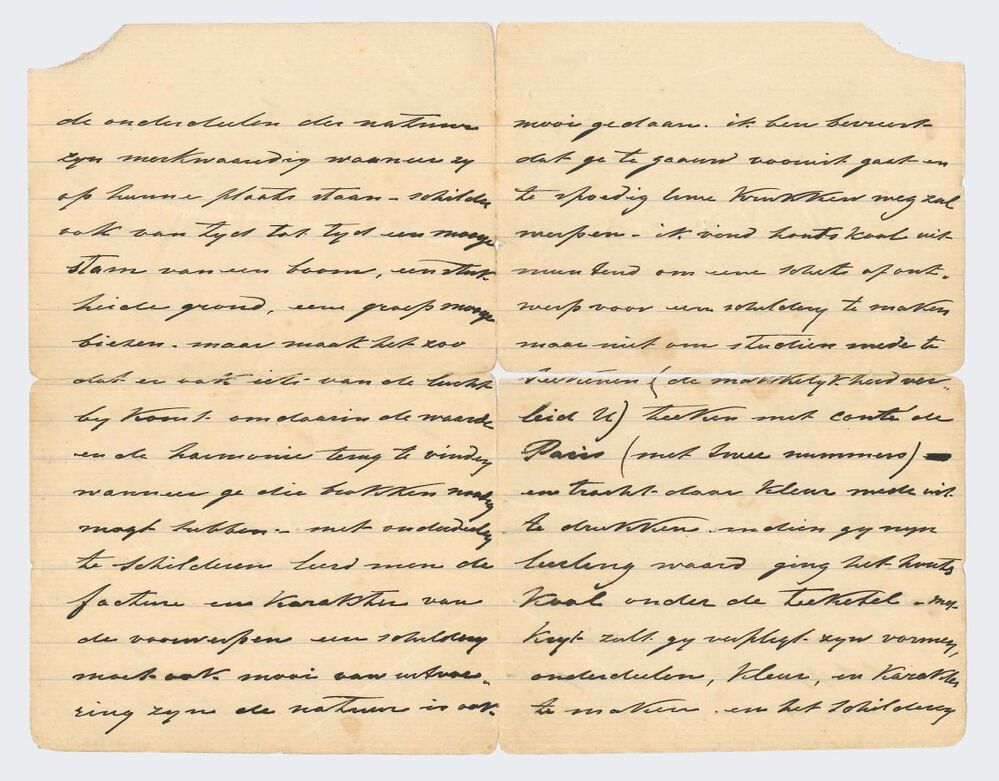 de onderdeelen der natuur
zyn merkwaardig wanneer zy
op hunne plaats staan - schilder
ook van tyd tot tyd een mooye
stam van een boom, een stuk
heide grond, eene groep mooye
biezen - maar maak het zoo
dat er ook iets van de lucht
by komt om daarin de waarde
en de harmonie terug te vinden
wanneer ge die brokken nodig
mogt hebben - met onderdeelen
te schilderen leerd men de
facture en karakter van
de voorwerpen een schildery
moet ook mooi van uitvoe-
ring zyn de natuur is ook
mooi gedaan. ik ben bevreest
dat ge te gaauw vooruit gaat en
te spoedig uwe krukken weg zal
werpen - ik vind houtskool uit
muntend om eene schets of ont-
werp voor een schildery te maken
maar niet om studien mede te
teekenen (de makkelykheid ver-
leid U) teeken met conté de
Paris (met twee nummers) -
en tracht daar kleur mede uit
te drukken indien gy myn
leerling waard ging het houts
kool onder de teeketel - met
kryt zult gy verpligt zyn vormen,
onderdeelen, kleur, en karakter
te maken. en het schildery